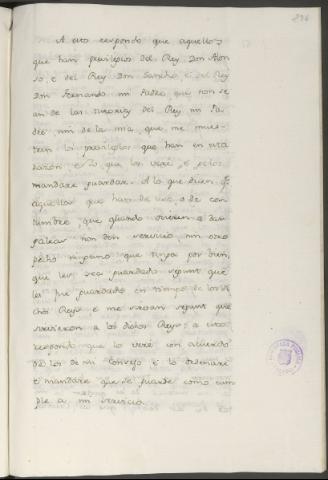 A esto respondo que aquellos
que han privilegios del Rey Don Alon
so, e del Rey Don Sancho, e del Rey
Don Fernando mi Padre que non se
an de las tutorias del Rey mi Pa
dre nin de la mia, que me mues-
tren los privilegios que han en esta
razon e lo que los veré e gelos
mandaré guardar. A lo que dicen q.
aquellos que han de uso, e de cos
tumbre, que quando vinieren a
non den servicio, nin otro
pecho ninguno que tenga por bien,
que les sea guardado segunt que
les fue guardado en tiempo de los di
chos Reyes e me sirvan segunt que
sirvieron a los dichos Reyes a esto
respondo que lo veré con acuerdo
de los de mi Consejo e lo ordenaré
e mandaré que se guarde como cum
ple a mi servicio.